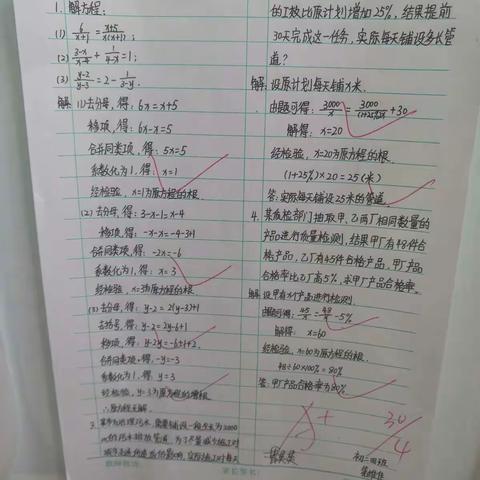 1. 解方程:
(1) 6/(x+1) = (x+5)/(x(x+1));
(2) (3-x)/(x-4) + 1/(4-x) = 1;
(3) (y-2)/(y-3) = 2 - 1/(3-y).
解: (1)去分母, 得: 6x=x+5
移项, 得: 6x-x=5
合并同类项, 得: 5x=5
系数化为1, 得: x=1
经检验, x=1为原方程的根.
(2)去分母, 得: 3-x-1=x-4
移项, 得: -x-x=-4-3+1
合并同类项, 得: -2x=-6
系数化为1, 得: x=3
经检验, x=3为原方程的根.
(3)去分母, 得: y-2=2(y-3)+1
去括号, 得: y-2=2y-6+1
移项, 得: y-2y=-6+1+2
合并同类项, 得: -y=-3
系数化为1, 得: y=3
经检验, y=3为原方程的增根
∴原方程无解.
3. 某市为治理污水, 需要铺设一段全长为3000
m的污水排放管道, 为了尽量减少施工对
城市交通所造成的影响, 实际施工时每天
的工效比原计划增加25%, 结果提前
30天完成这一任务, 实际每天铺设多长管
道?
解: 设原计划每天铺x米.
由题可得: 3000/x = 3000/((1+25%)x) + 30
解得: x=20
经检验, x=20为原方程的根.
(1+25%)×20=25(米)
答: 实际每天铺设25米的管道.
4. 某质检部门抽取甲、乙两厂相同数量的
产品进行质量检测, 结果甲厂有48件合
格产品, 乙厂有45件合格产品, 甲厂产品
合格率比乙厂高5%, 求甲厂产品合格率.
解: 设甲有x个产品进行检测.
由题可得: 45/x = 48/x - 5%
解得: x=60
经检验, x=60为原方程的根.
48÷60×100%=80%
答: 甲厂产品合格率为80%.
A+
30/4
家长签名: